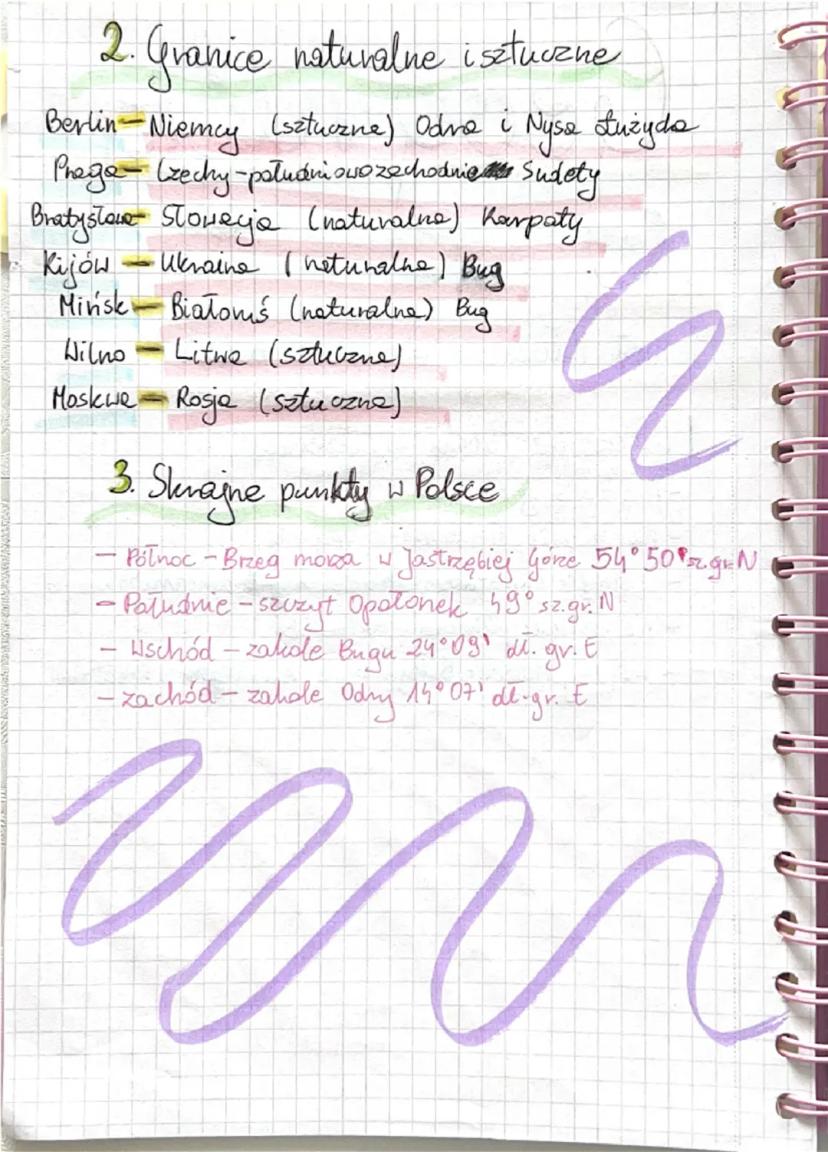 2. Granice naturalne i sztuczne
Berlin - Niemcy (sztuczna) Odra i Nysa Łużycka
Praga - Czechy - południowozachodnie Sudety
Bratysława - Słowacja (naturalna) Karpaty
Kijów - Ukraina (naturalna) Bug
Mińsk - Białoruś (naturalna) Bug
Wilno - Litwa (sztuczna)
Moskwa - Rosja (sztuczna)
3. Skrajne punkty w Polsce
- Północ - Brzeg morza w Jastrzębiej Górze 54°50' sz.gr. N
- Południe - szczyt Opołonek 49° sz.gr. N
- Wschód - zakole Bugu 24°09' dł. gr. E
- zachód - zakole Odry 14°07' dł. gr. E